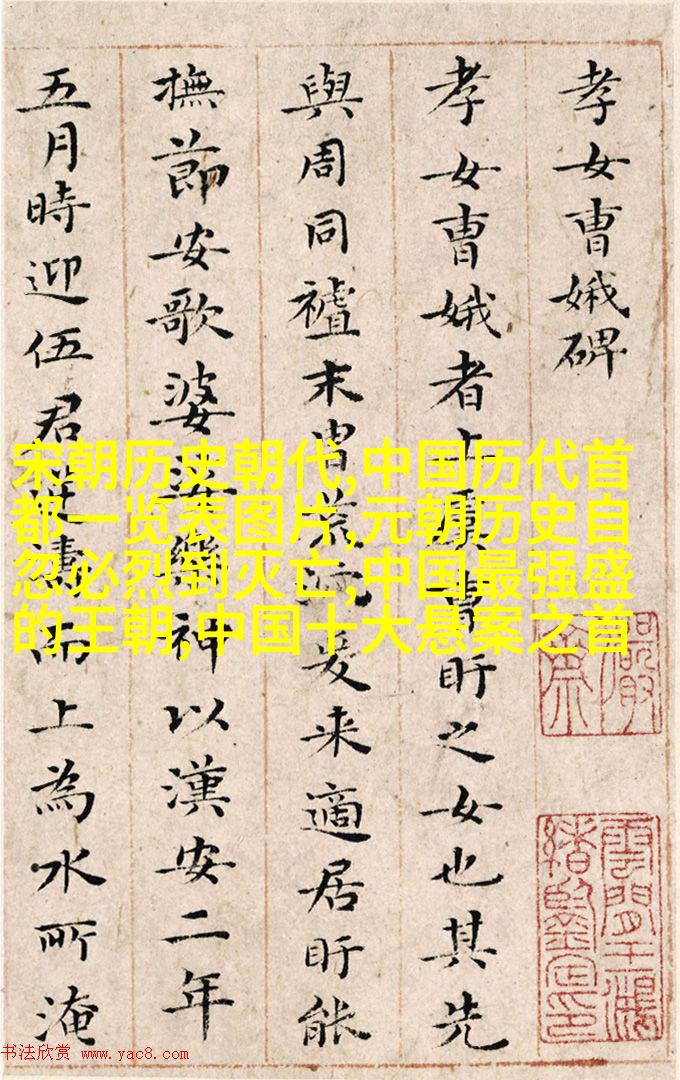 孝女曹娥碑
孝女曹娥者上虞曹盱之女也其先
與周同末胄荒爰来適居盱能
撫節安歌婆娑樂神以漢安二年
五月時迎伍君逆濤而上為水所淹
宋朝历史朝代,中国历代首
都一览表图片,元朝历史自
忽必烈到灭亡,中国最强盛
的王朝,中国十大悬案之首
书法欣赏 www.yac8.com